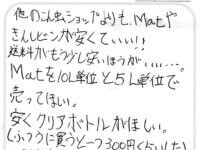 他のこん虫ショップよりも、Matや
きんしビンが安くていい!!
送料がもう少し安いほうが、、、、、。
Matを10L単位と5L単位で
売ってほしい。
安くクリアボトルがほしい。
(ふつうに買うと一つ300円くらいした)